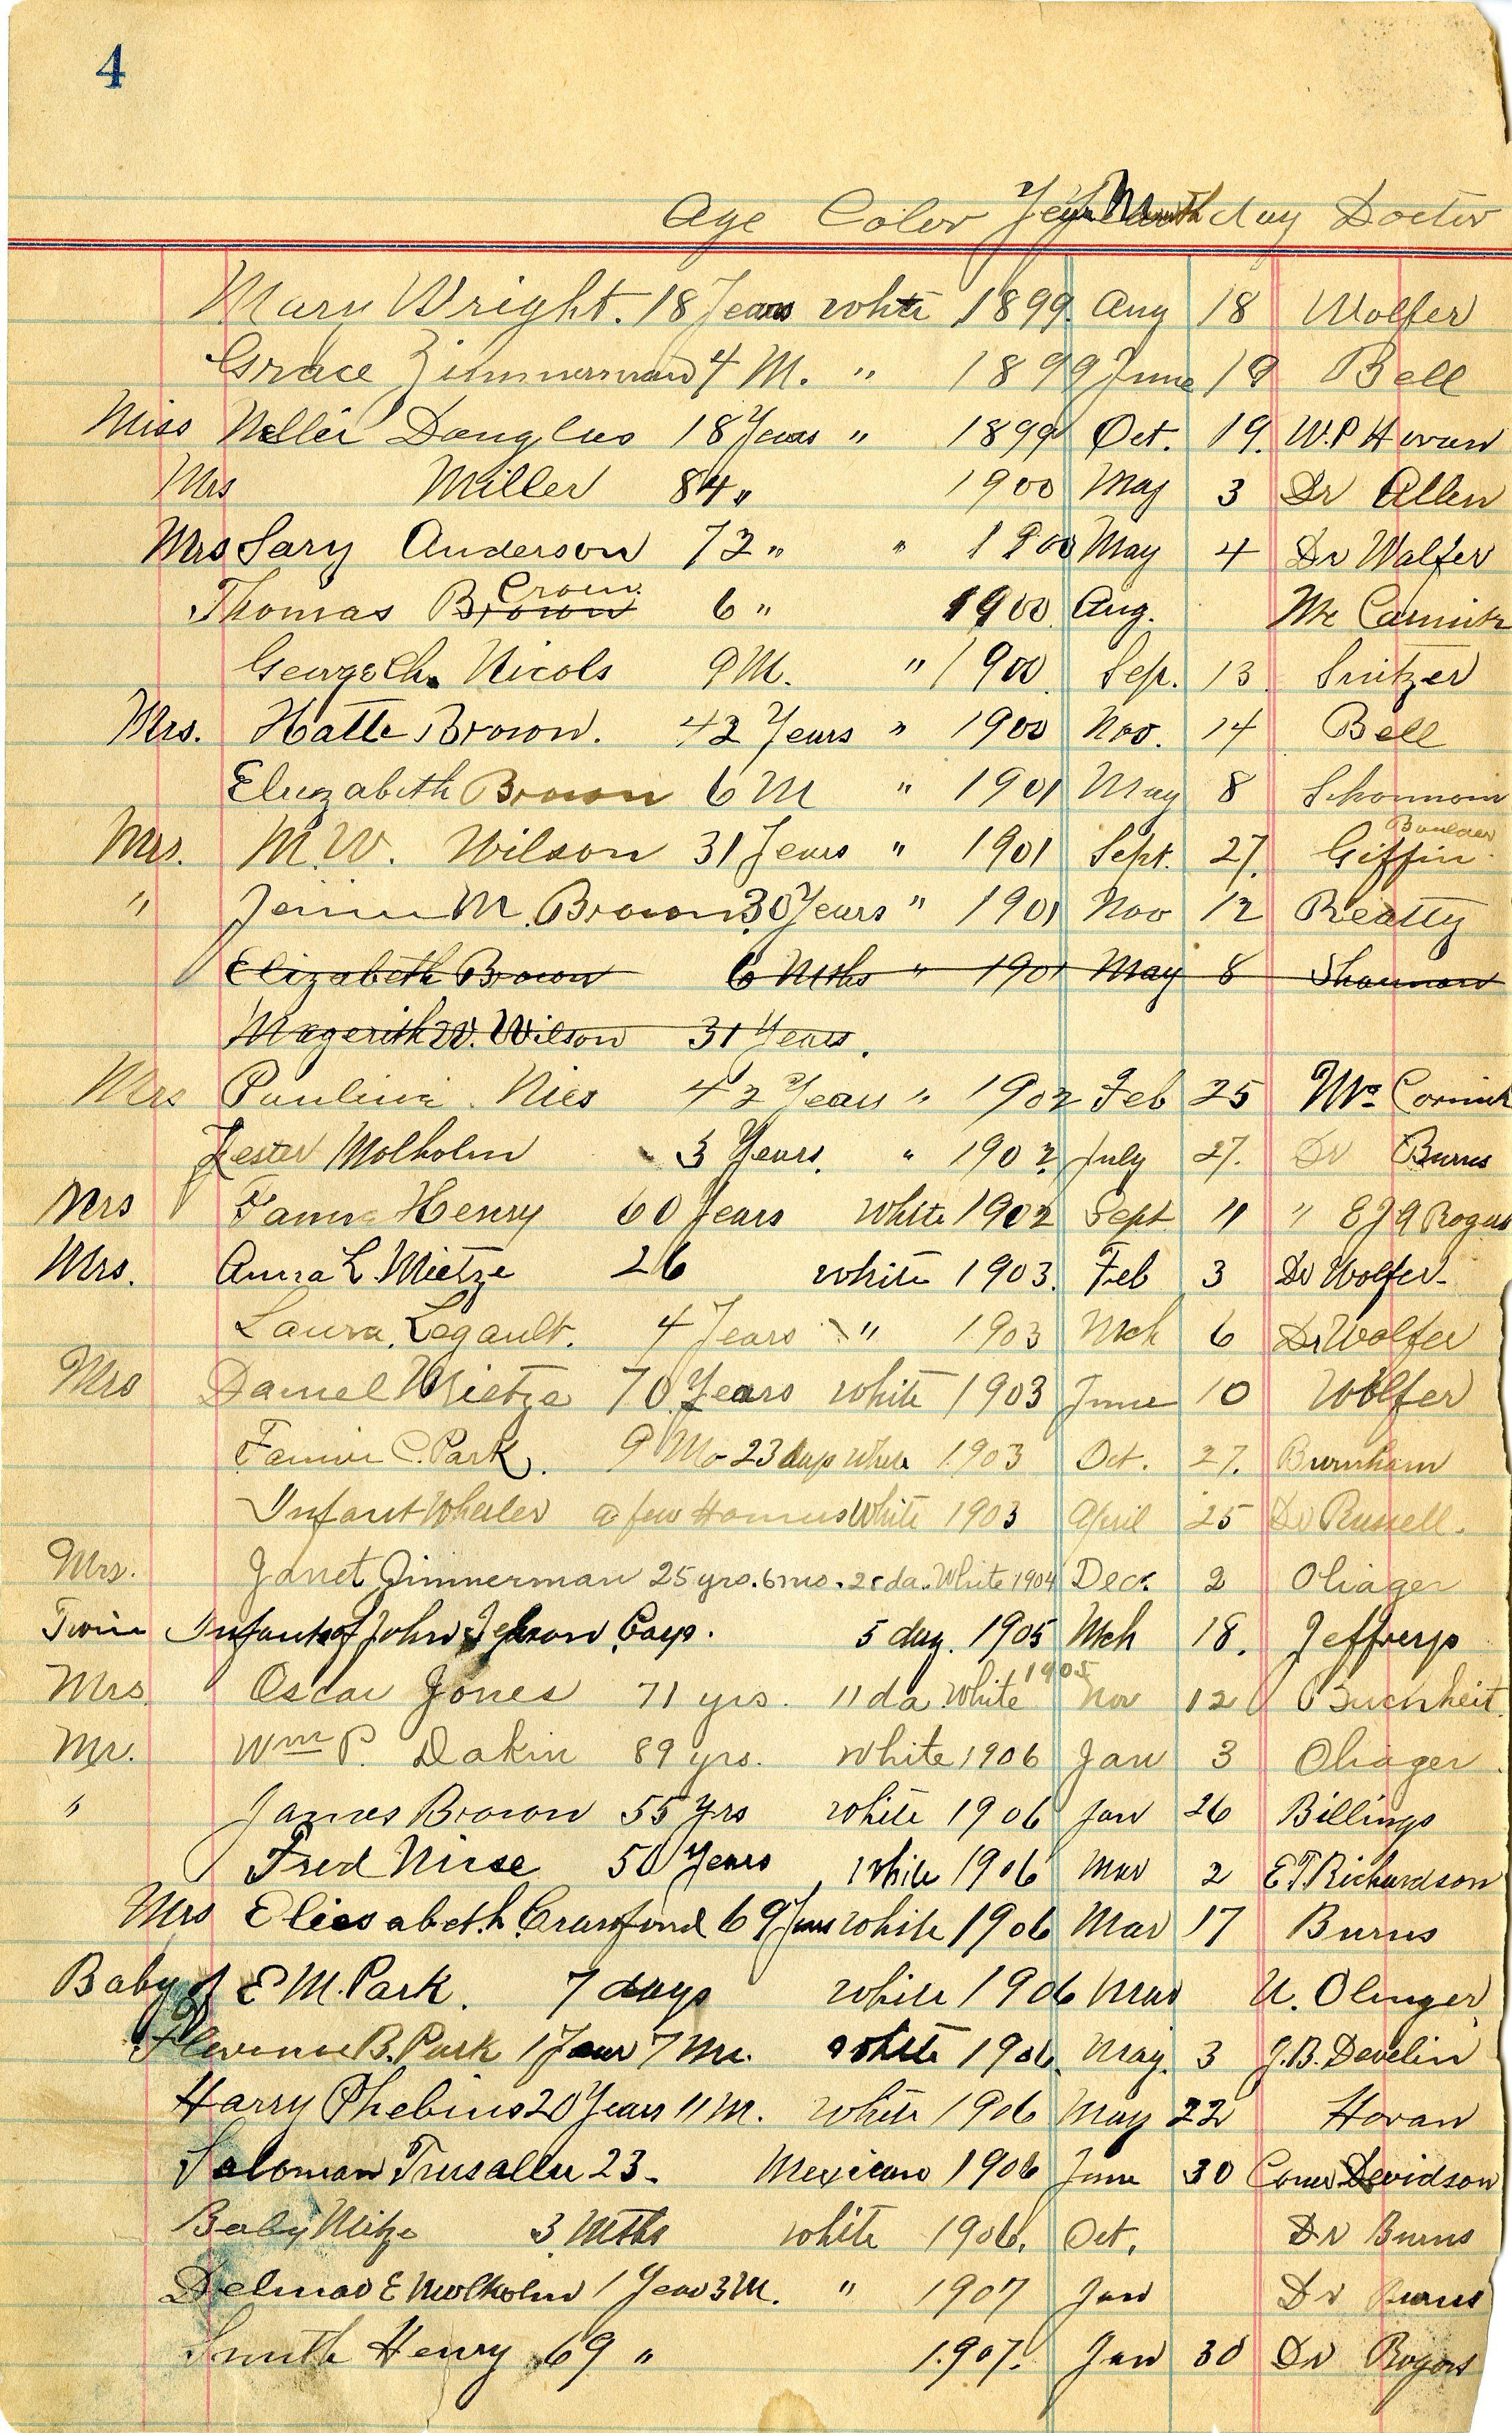 4
Age Color Year Month day Doctor
Mary Wright. 18 Years white 1899. Aug 18 Wolfer
Grace Zimmerman 4 M. " 1899 June 19 Bell
Miss Nellie Douglas 18 Years " 1899 Oct. 19. W.P Horan
Mrs Miller 84 " 1900 May 3 Dr Allen
Mrs Sary Anderson 72 " " 1900 May 4 Dr Walfer
Croin.
Thomas Brown 6 " 1900 Aug. Mc
George Ch. Nicols 9 M. " 1900. Sep. 13. Snitzer
Mrs. Hatte Brown. 42 Years " 1900 Nov. 14 Bell
Eluzabeth Brown 6 M " 1901 May 8
Boulder
Mrs. M. W. Wilson 31 Years " 1901 Sept. 27. Giffin.
" Jennie M. Brown 30 Years " 1901 Nov 12 Beatty
Elizabeth Brown 6 Mths " 1901 May 8 Shannon
Magerith W. Wilson 31 Years.
Mrs Paulina Nies 42 Years " 1902 Feb 25 Mc Cormick
Lester Molholm 3 Years. " 1902 July 27. Dr Burns
Mrs Henry 60 Years white 1902 Sept 11 " E J A Rogers
Mrs. Anna L. Mietze 26 white 1903. Feb 3 Dr Wolfer
Laura Legault. 4 Years " 1903 Mch 6 Dr Wolfer
Mrs Daniel Mietze 70 Years white 1903 June 10 Wolfer
Fannie C. Park. 9 Mo 23 days white 1903 Oct. 27. Burnham
Infant Wheeler a few Houers white 1903 April 25 Dr Russell.
Mrs. Janet Zimmerman 25 yrs. 6 mo. da. White 1904 Dec. 2 Olinger
Twin Infants of John 5 day. 1905 Mch 18. Jefferys
1905
Mrs. Oscar Jones 71 yrs. 11 da. White Nov 12 Buchheit.
Mr. Wm P. Dakin 89 yrs. White 1906 Jan 3 Olinger.
" James Brown 55 yrs white 1906 Jan 26 Billings
Fred Niese 50 Years white 1906 Mar 2 E.T. Richardson
Mrs Eliesabeth Crawford 69 Years white 1906 Mar 17 Burns
Baby of E M. Park. 7 days white 1906 Mar U. Olinger
Florence B. Park 1 Year 7 Mo. white 1906. May. 3 J. B. Develin
Harry Phebius 20 Years 11 M. white 1906 May 22 Horan
Soloman 23. Mexican 1906 June 30 Coner Davidson
Baby Mitze 3 Mths white 1906. Oct. Dr Burns
Delmar E Molholm 1 Year 3 M. " 1907 Jan Dr Burns
Smith Henry 69 " 1907. Jan 30 Dr Rogers